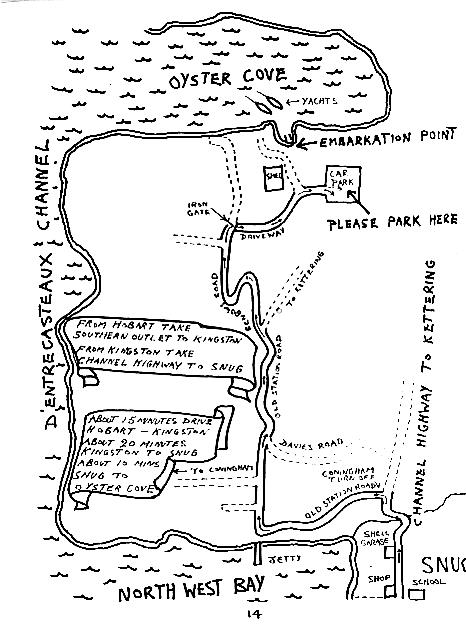 OYSTER COVE
YACHTS
EMBARKATION POINT
D'ENTRECASTEAUX CHANNEL
SHED
CAR
PARK
PLEASE PARK HERE
IRON
GATE
DRIVEWAY
TO KETTERING
ROAD
FROM HOBART TAKE
SOUTHERN OUTLET TO KINGSTON
FROM KINGSTON TAKE
CHANNEL HIGHWAY TO SNUG
OLD STATION ROAD
CHANNEL HIGHWAY TO KETTERING
ABOUT 15 MINUTES DRIVE
HOBART - KINGSTON
ABOUT 20 MINUTES
KINGSTON TO SNUG
ABOUT 10 MINS
SNUG TO
OYSTER COVE
DAVIES ROAD
TO CONINGHAM
CONINGHAM
TURN OFF
OLD STATION ROAD
SHELL
GARAGE
JETTY
SNUG
SHOP
SCHOOL
NORTH WEST BAY
14